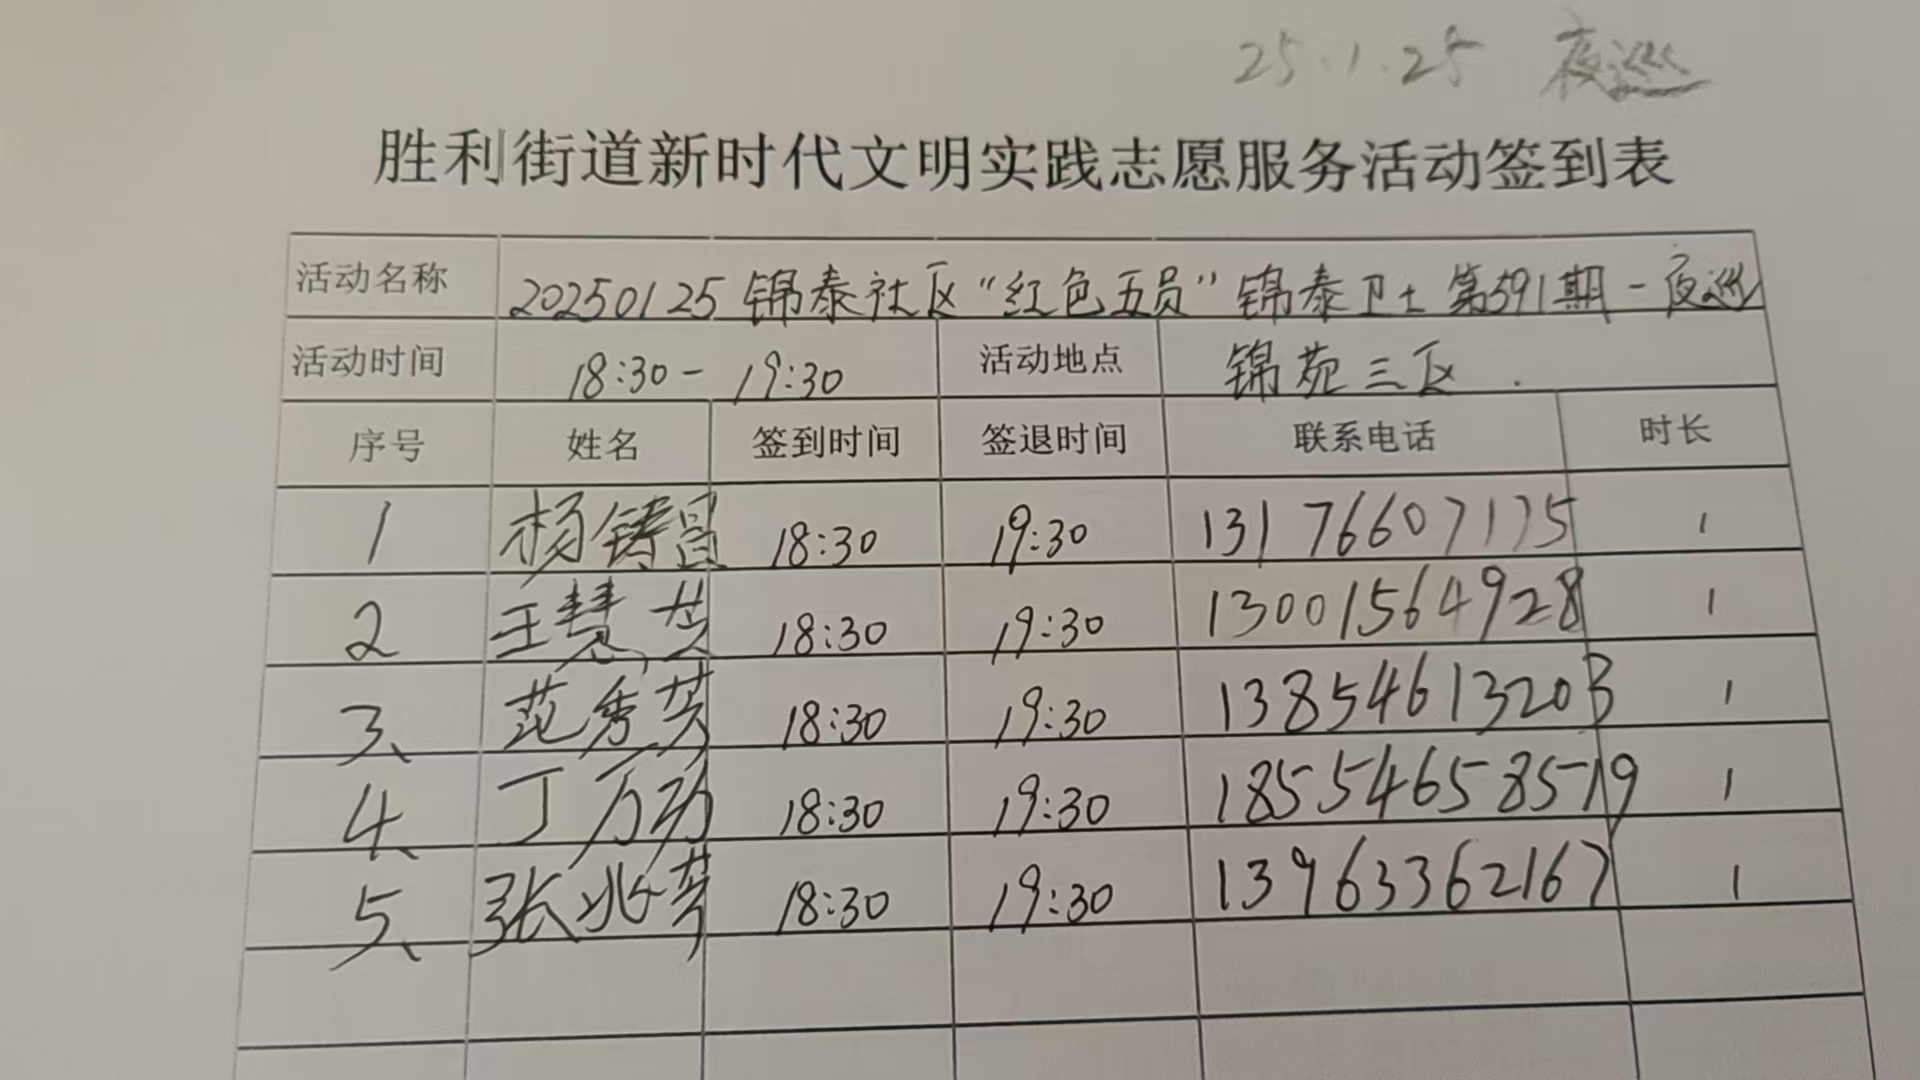 25.1.25 夜巡
胜利街道新时代文明实践志愿服务活动签到表
活动名称 20250125 锦泰社区“红色五员”锦泰卫士第591期-夜巡
活动时间 18:30-19:30 活动地点 锦苑三区.
序号 姓名 签到时间 签退时间 联系电话 时长
1 杨铸昌 18:30 19:30 13176607175 1
2 王慧英 18:30 19:30 13001564928 1
3、 范秀英 18:30 19:30 13854613203 1
4、 丁万功 18:30 19:30 18554658519 1
5、 张兆芹 18:30 19:30 13963362167 1